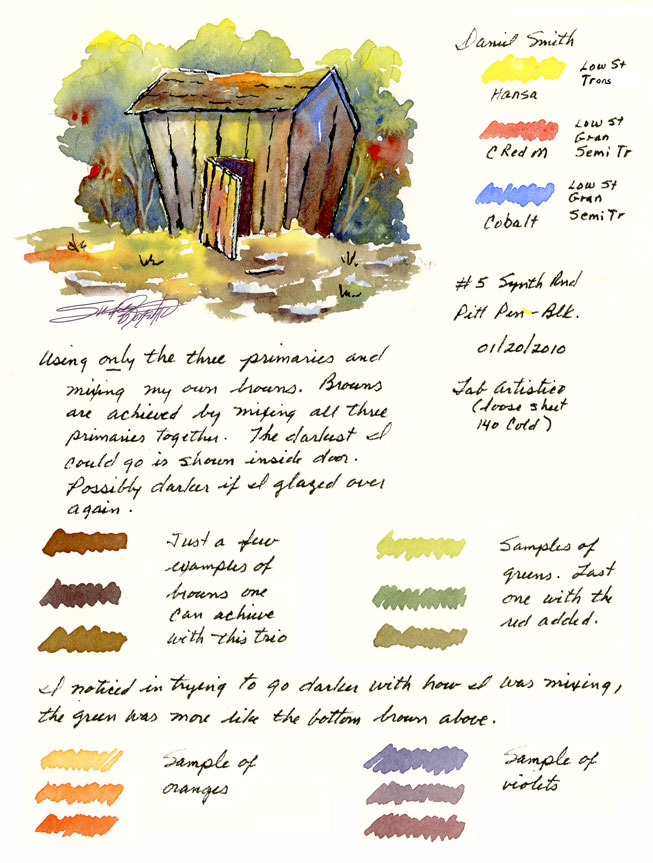 Daniel Smith
Hansa
Low St
Trans
C Red M
Low St
Gran
Semi Tr
Cobalt
Low St
Gran
Semi Tr
#5 Synth Rnd
Pitt Pen - Blk.
01/20/2010
Fab Artistico
(loose sheet
140 Cold)
Using only the three primaries and
mixing my own browns. Browns
are achieved by mixing all three
primaries together. The darkest I
could go is shown inside door.
Possibly darker if I glazed over
again.
Just a few
examples of
browns one
can achieve
with this trio
Samples of
greens. Last
one with the
red added.
I noticed in trying to go darker with how I was mixing,
the green was more like the bottom brown above.
Sample of
oranges
Sample of
violets